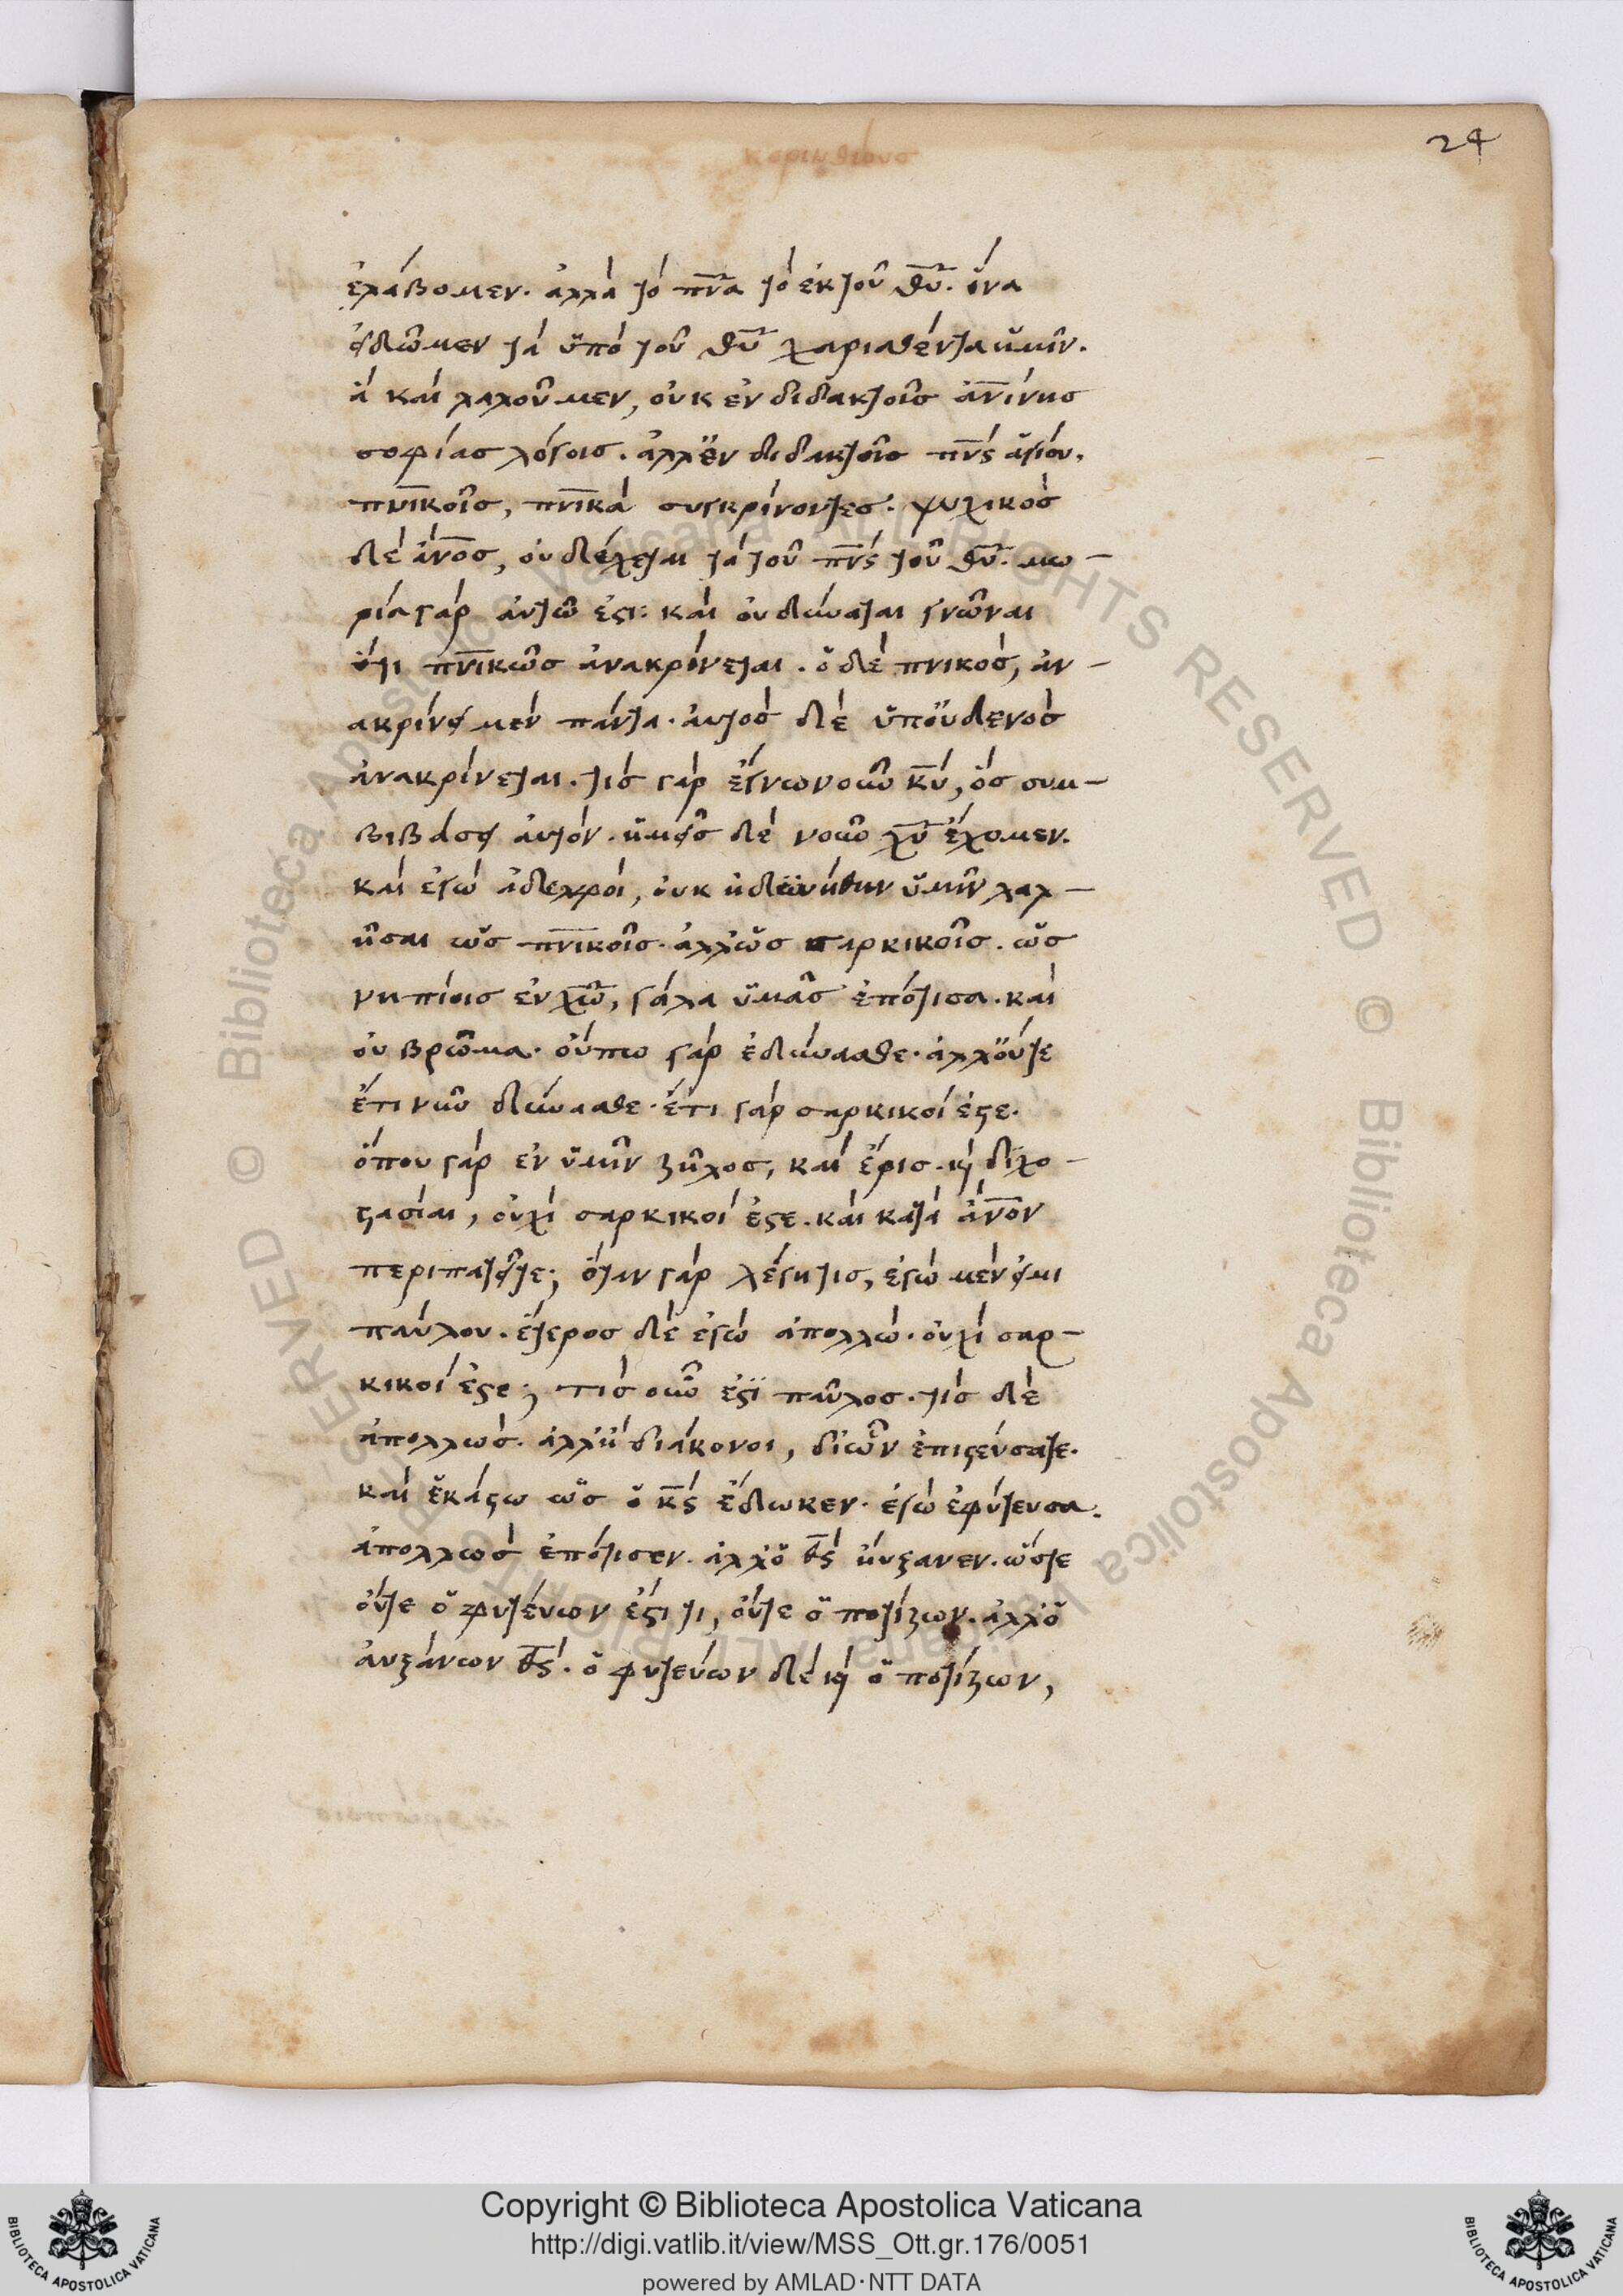 κορινθίουσ
24
ἐλάβομεν. ἀλλὰ τὸ πν̅α τὸ ἐκ τοῦ θ̅υ. ἵνα
εἰδῶμεν τὰ ὑπὸ τοῦ θ̅υ χαρισθέντα ἡμῖν.
ἃ καὶ λαλοῦμεν, οὐκ ἐν διδακτοῖσ ἀν̅ίνησ
σοφίασ λόγοισ. ἀλλ' ἐν διδακτοῖσ πν̅ς ἁγίου.
πν̅ικοῖσ, πν̅ικὰ συγκρίνοντεσ. ψυχικὸσ
δὲ ἄν̅οσ, οὐ δέχεται τὰ τοῦ πν̅ς τοῦ θ̅υ. μω-
ρία γὰρ αὐτῶ ἐϛι: καὶ οὐ δύναται γνῶναι
ὅτι πν̅ικῶσ ἀνακρίνεται. ὁ δὲ πνικὸσ, ἀν-
ακρίνει μὲν πάντα. αὐτὸσ δὲ ὑπ' οὐδενὸσ
ἀνακρίνεται. τίσ γὰρ ἔγνω νοῦν κ̅υ, ὃσ συμ-
βιβάσει αὐτόν. ἡμεῖσ δὲ νοῦν χ̅υ ἔχομεν.
καὶ ἐγὼ ἀδελφοὶ, οὐκ ἠδυνήθην ὑμῖν λαλ-
ῆσαι ὡσ πν̅ικοῖσ. ἀλλ' ὡσ σαρκικοῖσ. ὡσ
νηπίοισ ἐν χ̅ω, γάλα ὑμᾶσ ἐπότισα. καὶ
οὐ βρῶμα. οὔπω γὰρ ἐδύνασθε. ἀλλ' οὔτε
ἔτι νῦν δύνασθε. ἔτι γὰρ σαρκικοί ἐϛε.
ὅπου γὰρ ἐν ὑμῖν ζῆλοσ, καὶ ἔρισ. κ̀ διχο-
ϛασίαι, οὐχὶ σαρκικοί ἐϛε. καὶ κατὰ ἄν̅ον
περιπατεῖτε; ὅταν γὰρ λέγη τισ, ἐγὼ μὲν εἰμι
παύλου. ἕτεροσ δὲ ἐγὼ ἀπολλώ. οὐχὶ σαρ-
κικοί ἐϛε; τίσ οὖν ἐϛὶ παῦλοσ. τίσ δὲ
ἀπολλώσ. ἀλλ' ἢ διάκονοι, δι' ὧν ἐπιϛεύσατε.
καὶ ἑκάϛω ὡσ ὁ κ̅ς ἔδωκεν. ἐγὼ ἐφύτευσα.
ἀπολλὼσ ἐπότισεν. ἀλλ' ὁ θ̅ς ηὔξανεν. ὥστε
οὔτε ὁ φυτεύων ἐϛί τι, οὔτε ὁ ποτίζων. ἀλλ' ὁ
αὐξάνων θ̅ς. ὁ φυτεύων δὲ κ̀ ὁ ποτίζων,
Copyright © Biblioteca Apostolica Vaticana
http://digi.vatlib.it/view/MSS_Ott.gr.176/0051
powered by AMLAD·NTT DATA